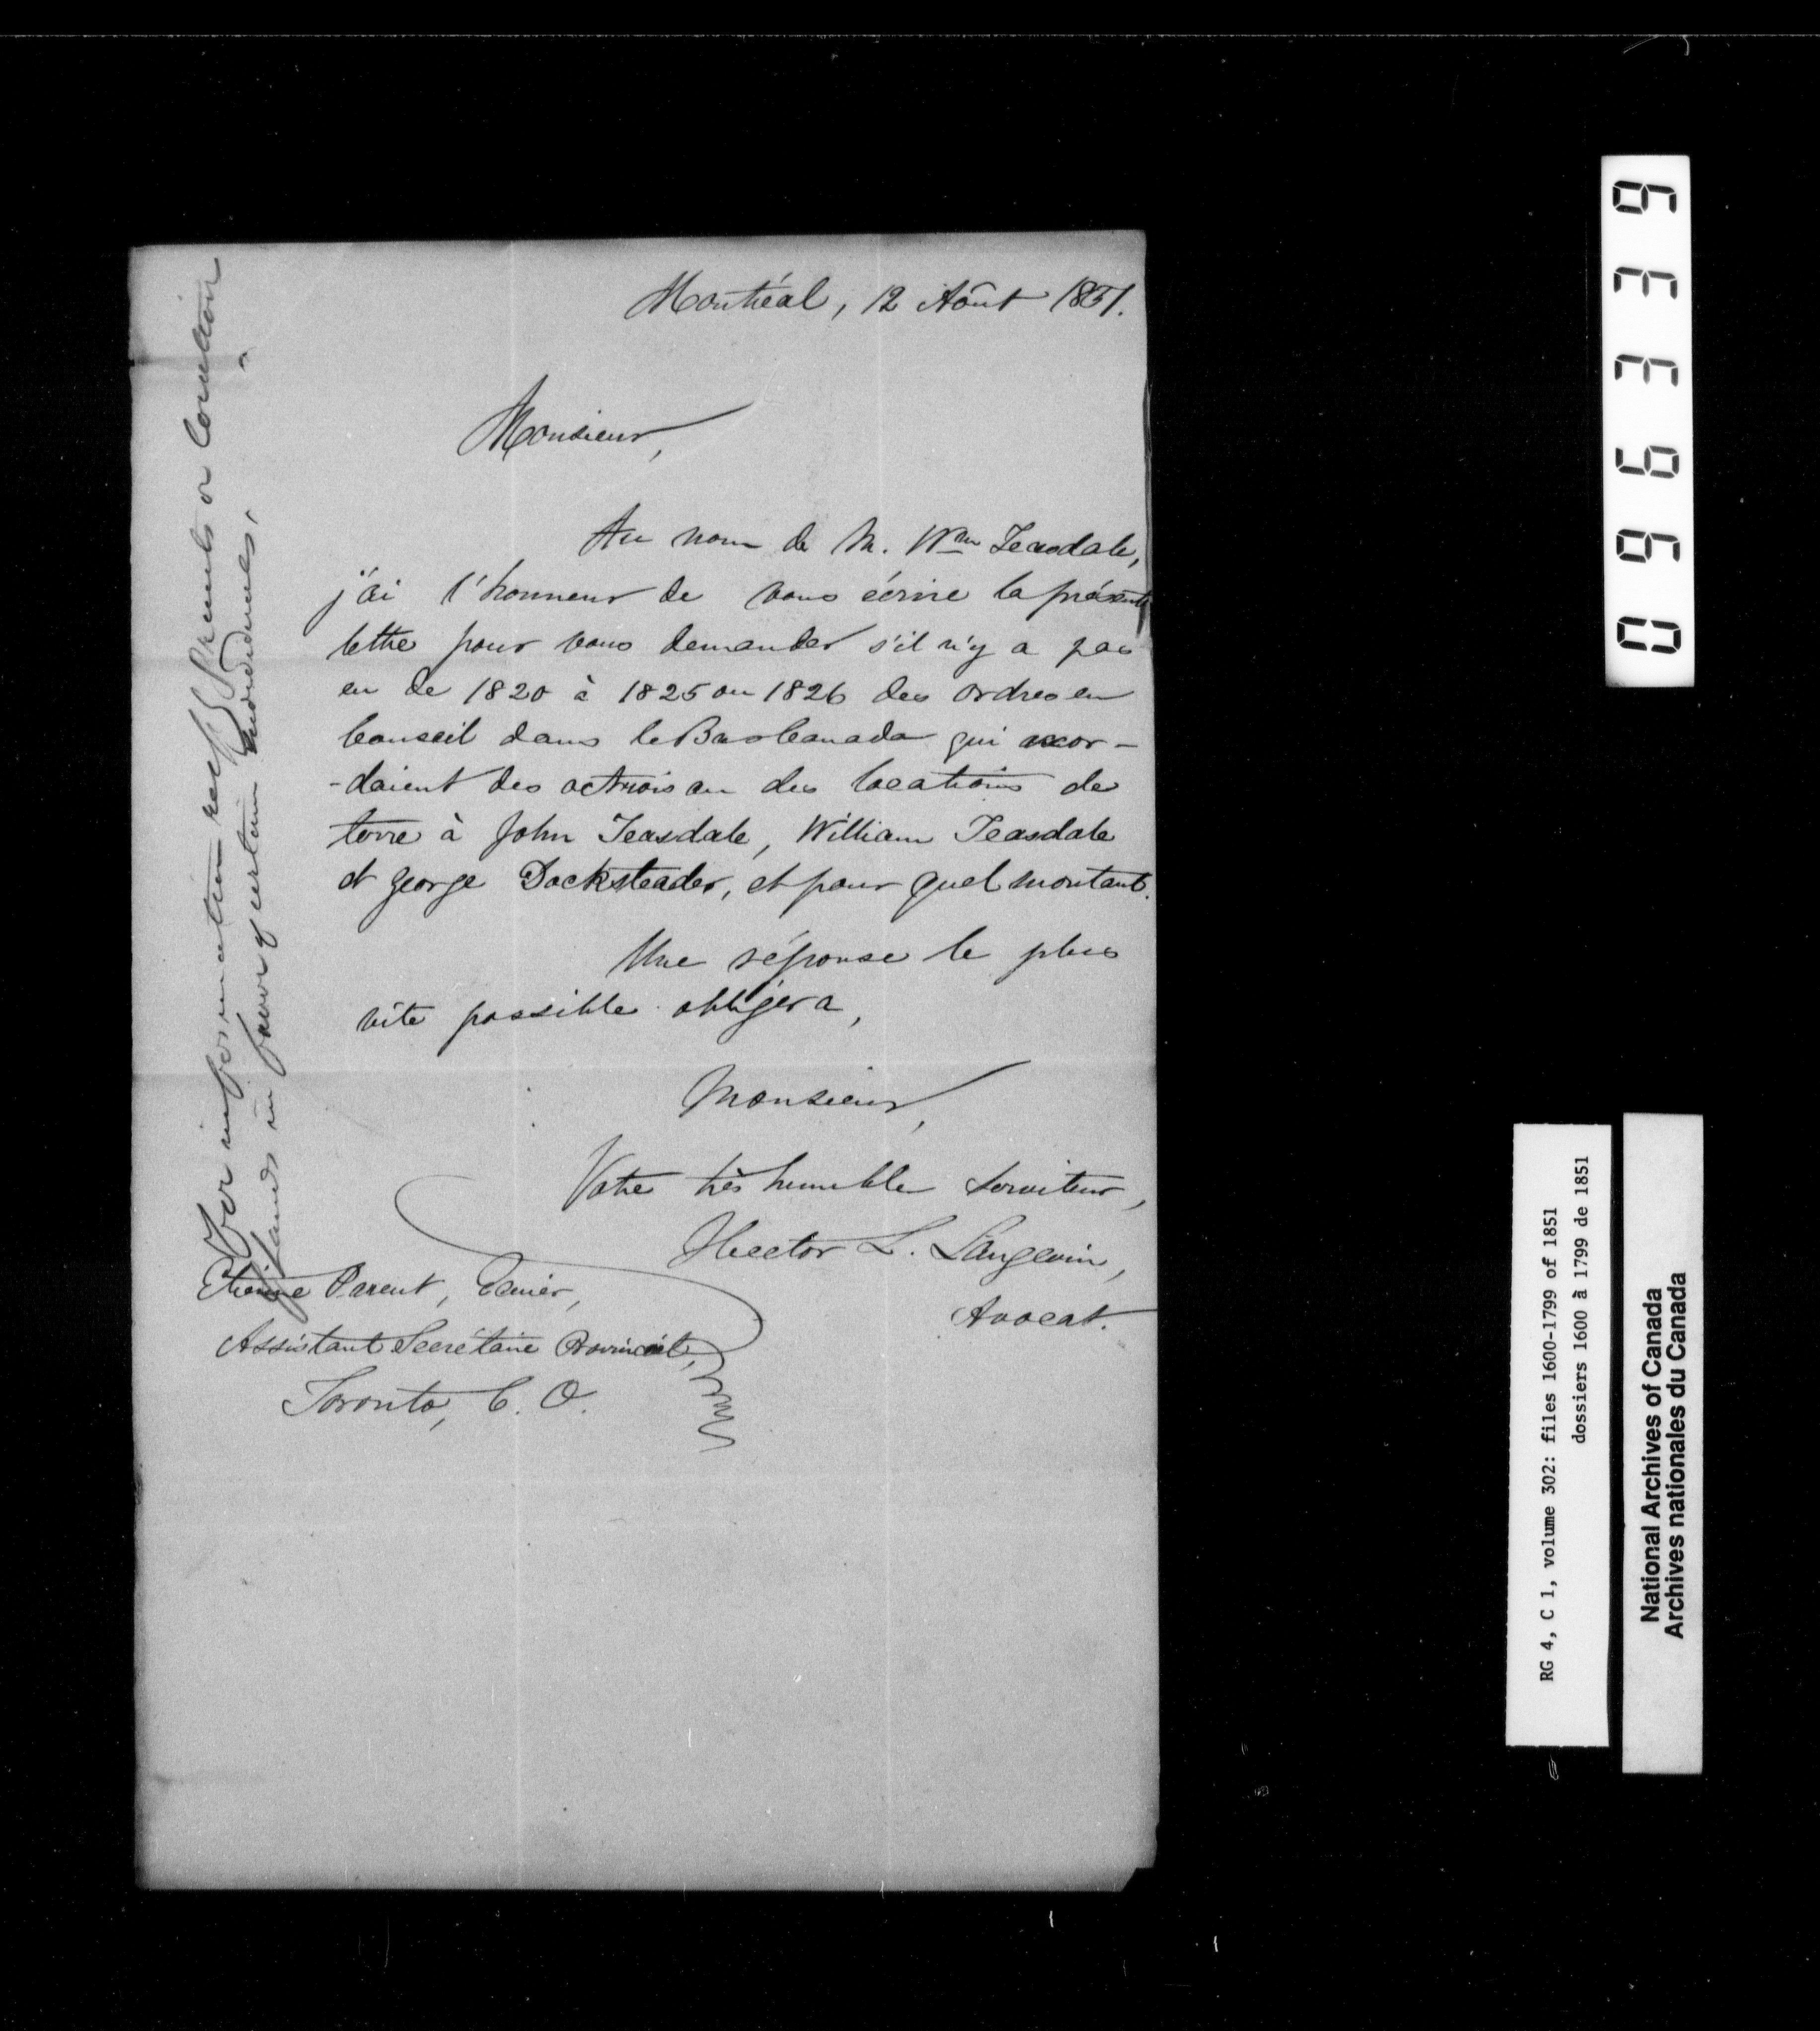 Montréal, 12 Août 1851.
Monsieur,
Au nom de M. Wm Teasdale,
j'ai l'honneur de vous écrire la présente
lettre pour vous demander s'il n'y a pas
eu de 1820 à 1825 ou 1826 des ordres en
Conseil dans le Bas Canada qui accor-
-daient des octrois ou des locations de
terre à John Teasdale, William Teasdale
et George Docksteader, et pour quel montant.
Une réponse le plus
vite possible obligera,
Monsieur,
Votre très humble serviteur,
Hector L. Langevin,
Avocat.
Etienne Parent, Ecuier,
Assistant Secrétaire Provincial,
Toronto, C. O.
For information resp. Grants or Location
of lands in favor of certain individuals.
096339
RG 4, C 1, volume 302: files 1600-1799 of 1851
dossiers 1600 à 1799 de 1851
National Archives of Canada
Archives nationales du Canada